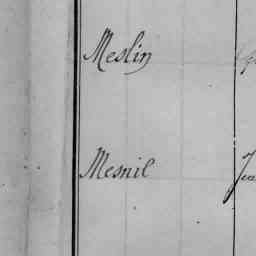 Meslin
Mesnil